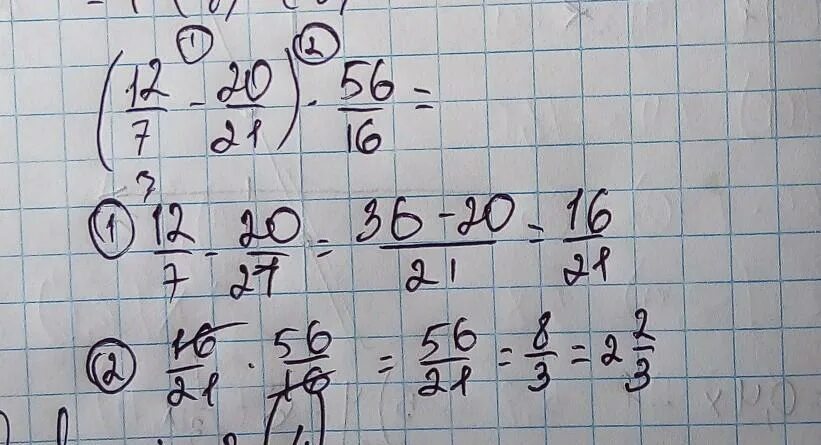 (12/7 - 20/21) · 56/16 =
① 12/7 - 20/21 = (36-20)/21 = 16/21
② 16/21 · 56/16 = 56/21 = 8/3 = 2 2/3